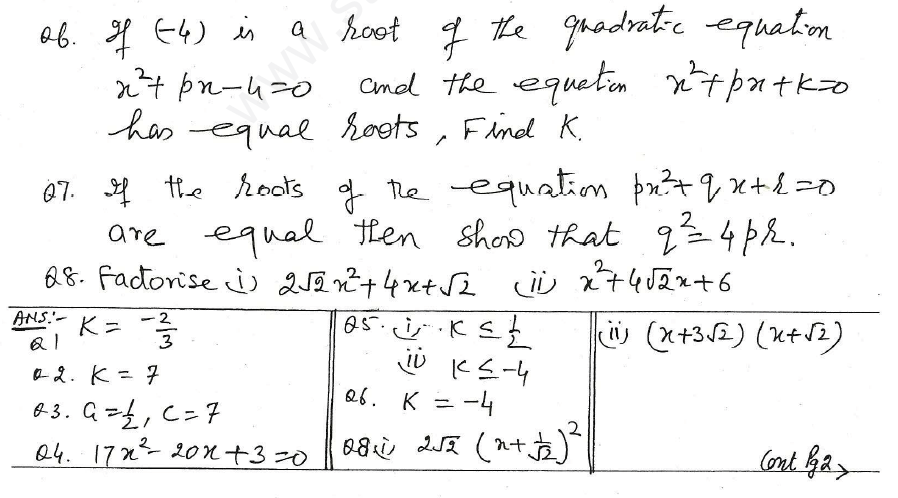 Q6. If (-4) is a root of the quadratic equation
x²+px-4=0 and the equation x²+px+k=0
has equal roots, Find K.
Q7. If the roots of the equation px²+qx+r=0
are equal then show that q²=4pr.
Q8. Factorise i) 2√2x²+4x+√2 (ii) x²+4√2x+6
ANS:-
Q1 K = -2/3
Q2. K = 7
Q3. a=1/2, c=7
Q4. 17x²-20x+3=0
Q5. (i) K ≤ 1/2
(ii) K ≤ -4
Q6. K = -4
Q8(i) 2√2 (x+1/√2)²
(ii) (x+3√2) (x+√2)
Cont Pg2>